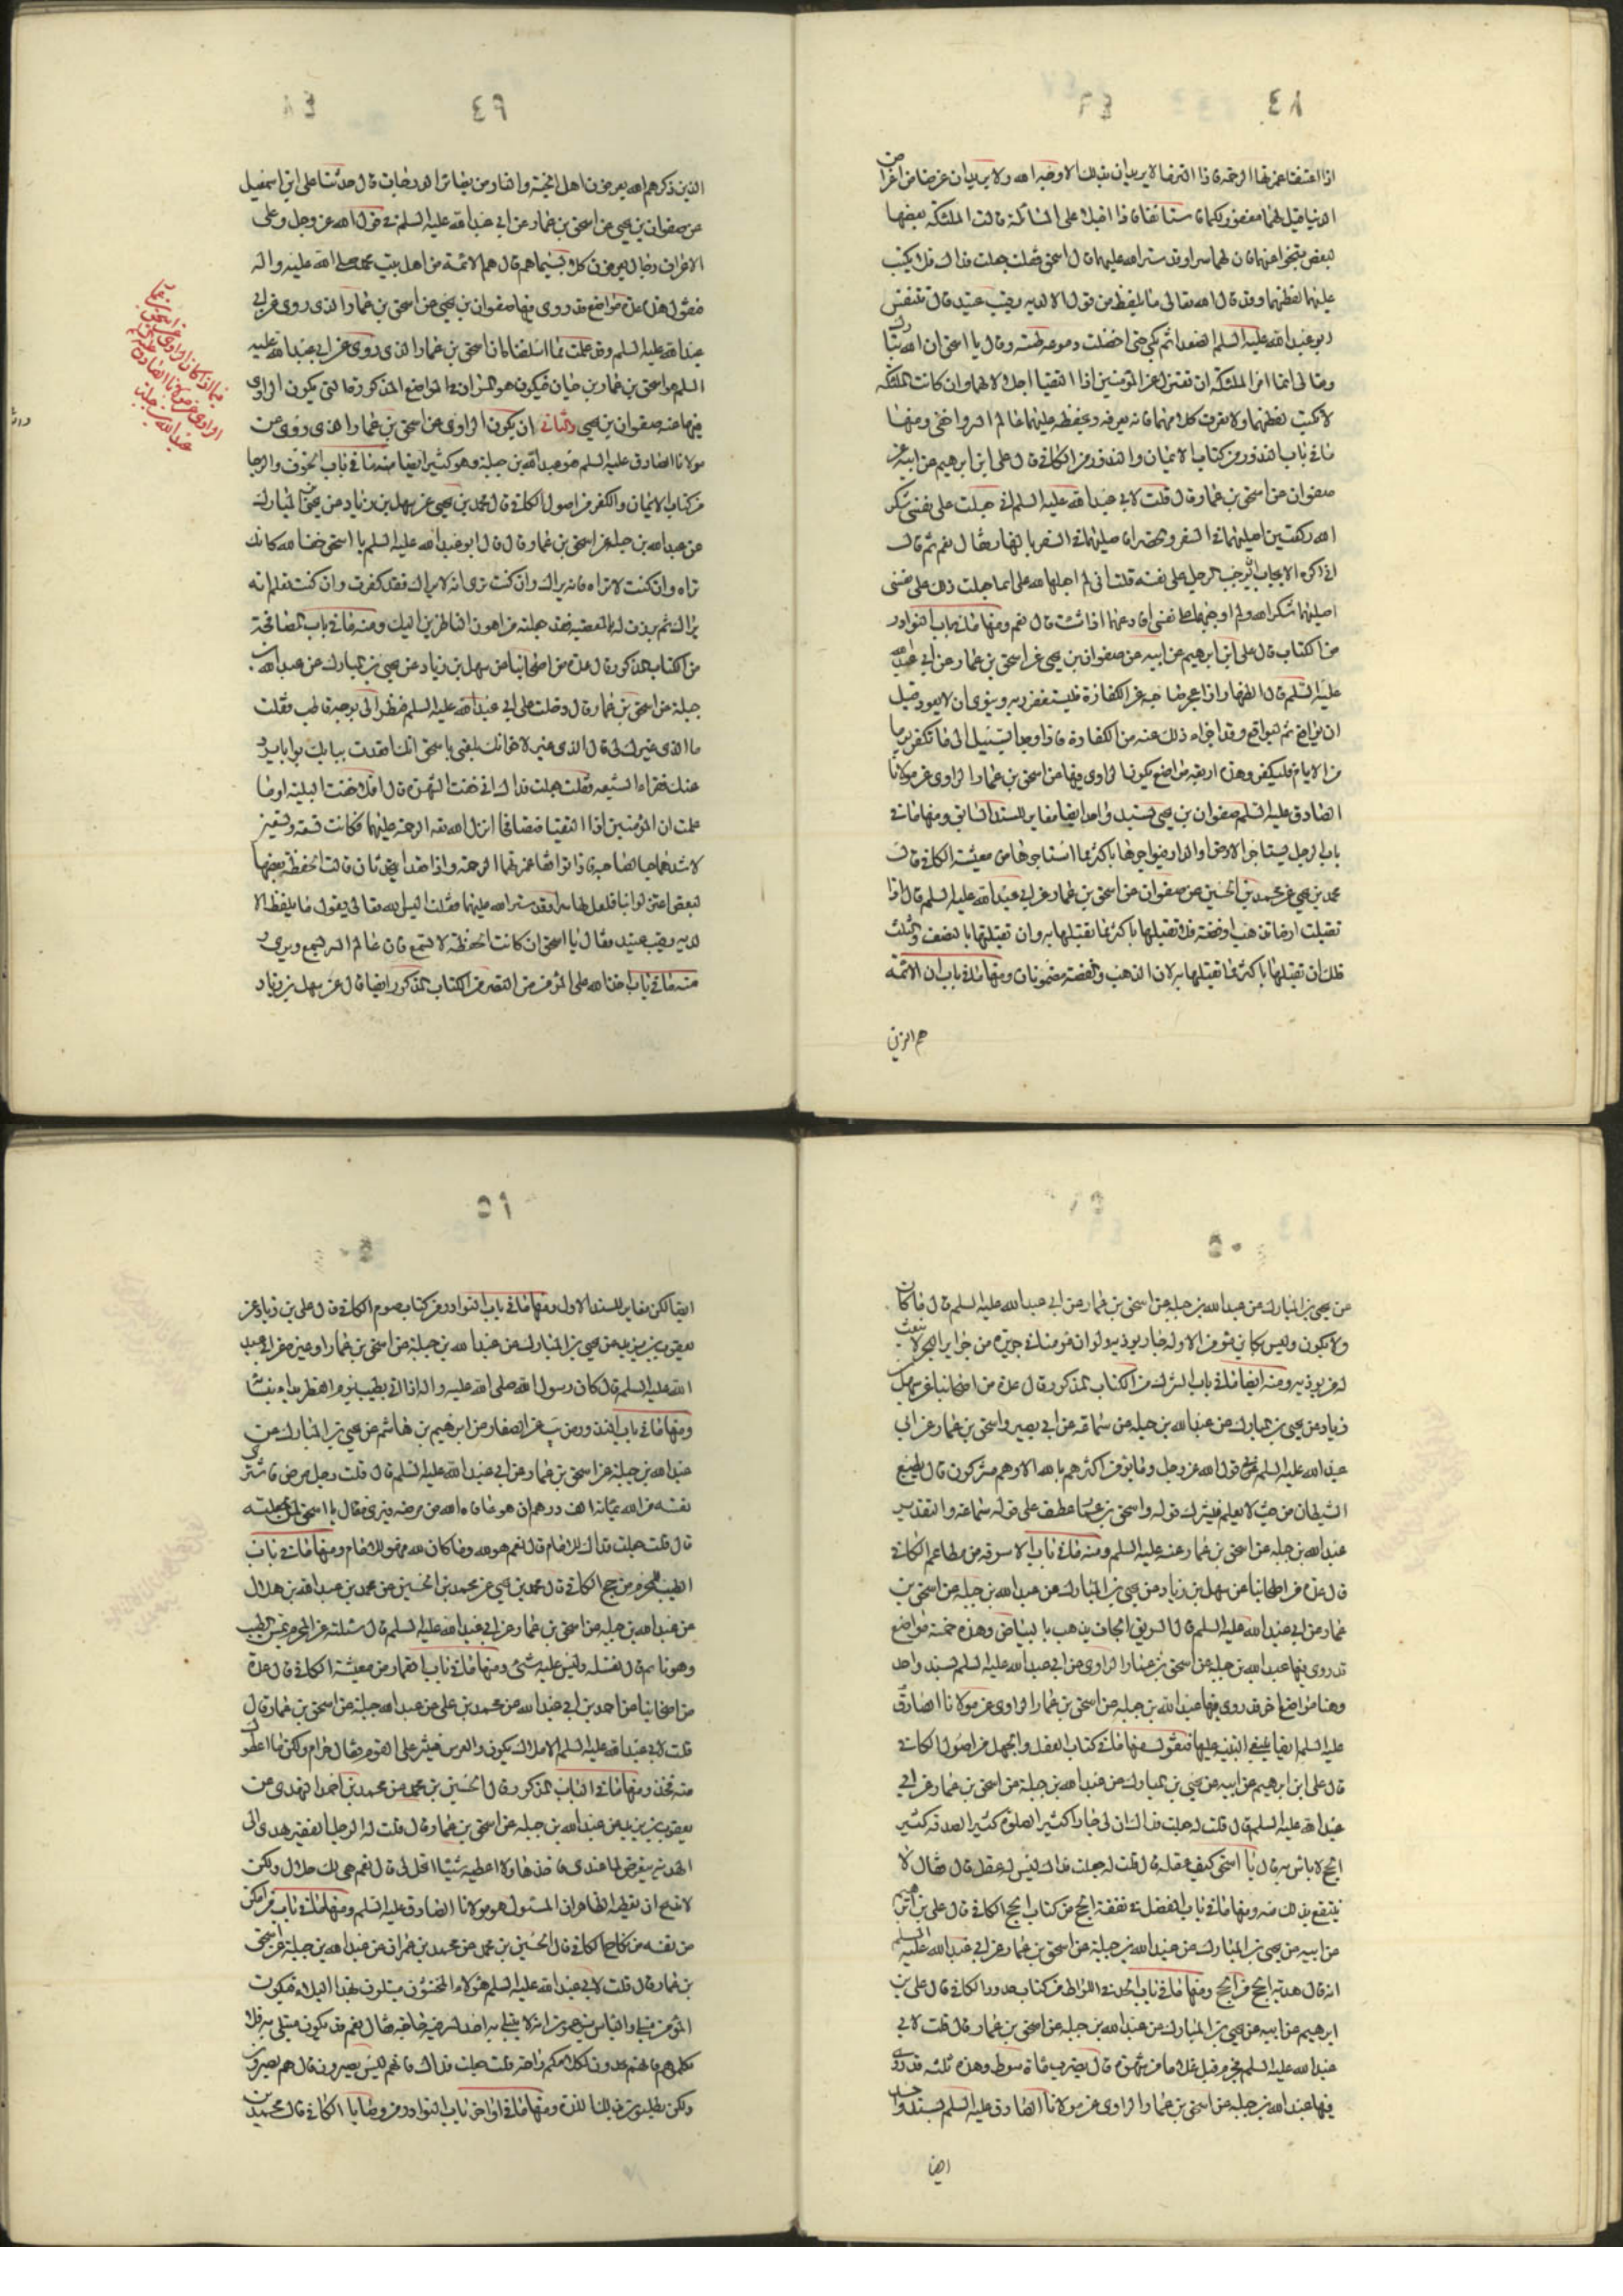 ٤٨
اذا اعتنقا غمرتهما الرحمة فاذا التزما لا يريدان بذلك الا وجه الله ولا يريدان غرضا من اغراض
الدنيا قيل لهما مغفور لكما فاستانفا فاذا اقبلا على المسائلة قالت الملئكة بعضها
لبعض تنحوا عنهما فان لهما سرا وقد ستر الله عليهما قال اسحق فقلت جعلت فداك فلا يكتب
عليهما لفظهما وقد قال الله تعالى ما يلفظ من قول الا لديه رقيب عتيد قال فتنفس
ابو عبد الله عليه السلم الصعداء ثم بكى حتى اخضلت دموعه لحيته وقال يا اسحق ان الله تبارك
وتعالى انما امر الملئكة ان تعتزل عن المؤمنين اذا التقيا اجلالا لهما وان كانت الملئكة
لا تكتب لفظهما ولا تعرف كلامهما فانه يعرفه ويحفظه عليهما عالم السر واخفى ومنها
ما في باب النذور من كتاب الايمان والنذور من الكافي قال علي ابن ابرهيم عن ابيه عن
صفوان عن اسحق بن عمار قال قلت لابي عبد الله عليه السلم اني جعلت على نفسي شكرا
لله ركعتين اصليهما في السفر والحضر افاصليهما في السفر بالنهار فقال نعم ثم قال
اني لاكره الايجاب ان يوجب الرجل على نفسه قلت اني لم اجعلهما لله علي انما جعلت ذلك على نفسي
اصليهما شكرا لله ولم اوجبهما على نفسي افادعهما اذا شئت قال نعم ومنها ما في باب النوادر
من الكتاب قال علي ابن ابرهيم عن ابيه عن صفوان بن يحيى عن اسحق بن عمار عن ابي عبد الله
عليه السلم قال الظهار اذا عجز صاحبه عن الكفارة فليستغفر ربه وينوي ان لا يعود قبل
ان يواقع ثم ليواقع وقد اجزاه ذلك عنه من الكفارة فاذا وجد السبيل الى ما يكفر يوما
من الايام فليكفر وهذه اربعة مواضع يكون الراوي فيها عن اسحق بن عمار الراوي عن مولانا
الصادق عليه السلم صفوان بن يحيى بسند واحد ايضا مغاير للسند السابق ومنها ما في
باب الرجل يستاجر الارض او الدار فيواجرها باكثر مما استاجرها من معيشة الكافي قال
محمد بن يحيى عن محمد بن الحسين عن صفوان عن اسحق بن عمار عن ابي عبد الله عليه السلم قال اذا
تقبلت ارضا بذهب او فضة فلا تقبلها باكثر مما تقبلتها به وان تقبلتها بالنصف والثلث
فلك ان تقبلها باكثر مما تقبلتها به لان الذهب والفضة مضمونان ومنها ما في باب ان الائمة
هم الذين
٤٩
الذين ذكرهم الله يعرفون اهل الجنة والنار من بصائر الدرجات قال حدثنا علي ابن اسمعيل
عن صفوان بن يحيى عن اسحق بن عمار عن ابي عبد الله عليه السلم في قول الله عز وجل وعلى
الاعراف رجال يعرفون كلا بسيماهم قال هم الائمة من اهل بيت محمد صلى الله عليه واله
فنقول هذه عدة مواضع قد روى فيها صفوان بن يحيى عن اسحق بن عمار الذي روى عن ابي
عبد الله عليه السلم وقد علمت مما اسلفنا ان اسحق بن عمار الذي روى عن ابي عبد الله عليه
السلم هو اسحق بن عمار بن حيان فيكون هو المراد في المواضع المذكورة التي يكون الراوي
فيها عنه صفوان بن يحيى والثاني ان يكون الراوي عن اسحق بن عمار الذي روى عن
مولانا الصادق عليه السلم هو عبد الله بن جبلة وهو كثير ايضا منه ما في باب الخوف والرجا
من كتاب الايمان والكفر من اصول الكافي قال محمد بن يحيى عن سهل بن زياد عن يحيى بن المبارك
عن عبد الله بن جبلة عن اسحق بن عمار قال قال ابو عبد الله عليه السلم يا اسحق خف الله كانك
تراه وان كنت لا تراه فانه يراك وان كنت ترى انه لا يراك فقد كفرت وان كنت تعلم انه
يراك ثم برزت له بالمعصية فقد جعلته من اهون الناظرين اليك ومنه ما في باب المصافحة
من الكتاب المذكور قال عدة من اصحابنا عن سهل بن زياد عن يحيى بن المبارك عن عبد الله بن
جبلة عن اسحق بن عمار قال دخلت على ابي عبد الله عليه السلم فنظر الي بوجه قاطب فقلت
ما الذي غيرك لي قال الذي غيرك لاخوانك بلغني يا اسحق انك اقعدت ببابك بوابا يرد
عنك فقراء الشيعه فقلت جعلت فداك اني خفت الشهرة قال افلا خفت البلية اوما
علمت ان المؤمنين اذا التقيا فتصافحا انزل الله الرحمة عليهما فكانت تسعة وتسعين
لاشدهما حبا لصاحبه فاذا توافقا غمرتهما الرحمة واذا قعدا يتحدثان قالت الحفظة بعضها
لبعض اعتزلوا بنا فلعل لهما سرا وقد ستر الله عليهما فقلت اليس الله تعالى يقول ما يلفظ من قول الا
لديه رقيب عتيد فقال يا اسحق ان كانت الحفظة لا تسمع فان عالم السر يسمع ويرى و
منه ما في باب حق الله على المؤمن من التقصير من الكتاب المذكور ايضا قال عن سهل بن زياد
فيما اذا كان الراوي عن اسحق بن عمار
الراوي عن مولانا الصادق عليه السلم
عبد الله بن جبلة
٥٠
عن يحيى بن المبارك عن عبد الله بن جبله عن اسحق بن عمار عن ابي عبد الله عليه السلم قال ما كان
ولا يكون وليس بكاين مؤمن الا وله جار يوذيه ولو ان مؤمنا في جزيرة من جزاير البحر لابتعث
له من يوذيه ومنه ايضا ما في باب الشرك من الكتاب المذكور قال عدة من اصحابنا عن سهل بن
زياد عن يحيى بن المبارك عن عبد الله بن جبله عن سماعة عن ابي بصير واسحق بن عمار عن ابي
عبد الله عليه السلم في قول الله عز وجل وما يؤمن اكثرهم بالله الا وهم مشركون قال يطيع
الشيطان من حيث لا يعلم فيشرك قوله واسحق بن عمار عطف على قوله سماعة والتقدير
عبد الله بن جبله عن اسحق بن عمار عنه عليه السلم ومنه ما في باب الاسوقه من مطاعم الكافي
قال عدة من اصحابنا عن سهل بن زياد عن يحيى بن المبارك عن عبد الله بن جبله عن اسحق بن
عمار عن ابي عبد الله عليه السلم قال السويق الجاف يذهب بالبياض وهذه خمسة مواضع
قد روى فيها عبد الله بن جبله عن اسحق بن عمار الراوي عن ابي عبد الله عليه السلم بسند واحد
وهنا مواضع اخر قد روى فيها عبد الله بن جبله عن اسحق بن عمار الراوي عن مولانا الصادق
عليه السلم ايضا ينبغي التنبيه عليها فنقول منها ما في كتاب العقل والجهل من اصول الكافي
قال علي ابن ابرهيم عن ابيه عن يحيى بن المبارك عن عبد الله بن جبلة عن اسحق بن عمار عن ابي
عبد الله عليه السلم قال قلت له جعلت فداك ان لي جارا كثير الصلوة كثير الصدقه كثير
الحج لا باس به قال يا اسحق كيف عقله قال قلت له جعلت فداك ليس له عقل قال فقال لا
ينتفع بذلك منه ومنها ما في باب الفضل في نفقة الحج من كتاب الحج الكافي قال علي بن ابرهيم
عن ابيه عن يحيى بن المبارك عن عبد الله بن جبلة عن اسحق بن عمار عن ابي عبد الله عليه السلم
انه قال هدية الحج من الحج ومنها ما في باب الحد في اللواط من كتاب حدود الكافي قال علي بن
ابرهيم عن ابيه عن يحيى بن المبارك عن عبد الله بن جبله عن اسحق بن عمار قال قلت لابي
عبد الله عليه السلم محرم قبل غلاما من شهوة قال يضرب مائة سوط وهذه ثلثة قد روى
فيها عبد الله بن جبلة عن اسحق بن عمار الراوي عن مولانا الصادق عليه السلم بسند واحد
ايضا
٥١
ايضا لكن مغاير للسند الاول ومنها ما في باب النوادر من كتاب صوم الكافي قال علي بن زياد عن
يعقوب بن يزيد عن يحيى بن المبارك عن عبد الله بن جبلة عن اسحق بن عمار او غيره عن ابي عبد
الله عليه السلم قال كان رسول الله صلى الله عليه واله اذا اتي بطيب يوم الفطر بدا بنسائه
ومنها ما في باب النذور من يب عن الصفار عن ابرهيم بن هاشم عن يحيى بن المبارك عن
عبد الله بن جبلة عن اسحق بن عمار عن ابي عبد الله عليه السلم قال قلت رجل مرض فاشترى
نفسه من الله بمائة الف درهم ان هو عافاه الله من مرضه فبرئ فقال يا اسحق لمن جعلته
قال قلت جعلت فداك للامام قال نعم هو لله وما كان لله فهو للامام ومنها ما في باب
الطيب للمحرم من حج الكافي قال محمد بن يحيى عن محمد بن الحسين عن محمد بن عبد الله بن هلال
عن عبد الله بن جبله عن اسحق بن عمار عن ابي عبد الله عليه السلم قال سئلته عن المحرم يمس الطيب
وهو نائم قال يغسله وليس عليه شئ ومنها ما في باب القمار من معيشة الكافي قال عدة
من اصحابنا عن احمد بن ابي عبد الله عن محمد بن علي عن عبد الله جبلة عن اسحق بن عمار قال
قلت لابي عبد الله عليه السلم الاملاك يكون والعرس فينثر على القوم فقال حرام ولكن ما اعطوك
منه فخذ ومنها ما في الباب المذكور قال الحسين بن محمد عن محمد بن احمد النهدي عن
يعقوب بن يزيد عن عبد الله بن جبله عن اسحق بن عمار قال قلت له الرجل الفقير يهدي الي
الهدية يتعرض لما عندي فاخذها ولا اعطيه شيئا ايحل لي قال نعم هي لك حلال ولكن
لا تدع ان تعطيه الظاهر ان المسئول هو مولانا الصادق عليه السلم ومنها ما في باب من امكن
من نفسه من نكاح الكافي قال الحسين بن محمد عن محمد بن عمران عن عبد الله بن جبلة عن اسحق
بن عمار قال قلت لابي عبد الله عليه السلم هؤلاء المخنثون مبتلون بهذا البلاء فيكون
المؤمن مبتلى والناس يزعمون انه لا يبتلى به احد لله فيه حاجة فقال نعم قد يكون مبتلى به فلا
تكلموهم فانهم يجدون لكلامكم راحة قلت جعلت فداك فانهم ليس يصبرون قال هم يصبرون
ولكن يطلبون بذلك اللذة ومنها ما في اواخر باب النوادر من وصايا الكافي قال محمد بن